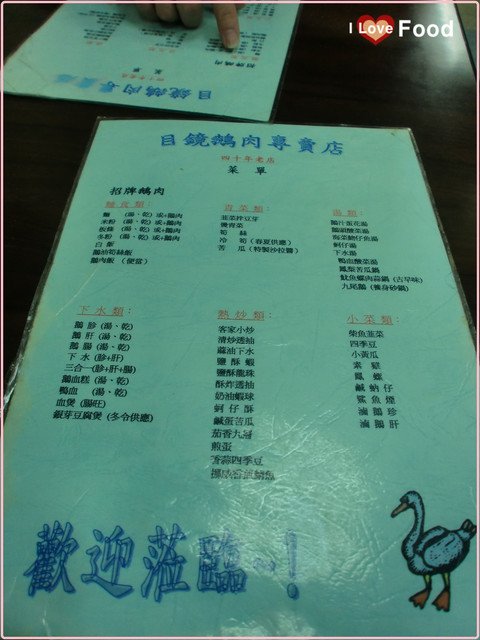 I Love Food
目鏡鵝肉專賣店
四十年老店
菜 單
招牌鵝肉
麵食類：
麵 (湯、乾) 或+鵝肉
米粉 (湯、乾) 或+鵝肉
板條 (湯、乾) 或+鵝肉
冬粉 (湯、乾) 或+鵝肉
白 飯
鵝油筍絲飯
鵝肉飯 (便當)
青菜類：
韭菜拌豆芽
燙青菜
筍 絲
冷 筍 (春夏供應)
苦 瓜 (特製沙拉醬)
湯類：
鵝汁蛋花湯
鵝腸酸菜湯
海菜魩仔魚湯
蚵仔湯
下水湯
鴨血酸菜湯
鳳梨苦瓜鍋
魷魚螺肉蒜鍋 (古早味)
九尾鷄 (養身砂鍋)
下水類：
鵝 胗 (湯、乾)
鵝 肝 (湯、乾)
鵝 腸 (湯、乾)
下 水 (胗+肝)
三合一 (胗+肝+腸)
鵝血糕 (湯、乾)
鴨血 (湯、乾)
血煲 (腸旺)
銀芽豆腐煲 (冬令供應)
熱炒類：
客家小炒
清炒透抽
蔴油下水
鹽 酥 蝦
鹽酥龍珠
酥炸透抽
奶油蝦球
蚵 仔 酥
鹹蛋苦瓜
茄香九層
煎蛋
香蒜四季豆
小菜類：
柴魚韭菜
四季豆
小黃瓜
素 雞
鳳 螺
鹹 蚋 仔
鯊 魚 煙
滷 鵝 珍
滷 鵝 肝
歡迎蒞臨~!